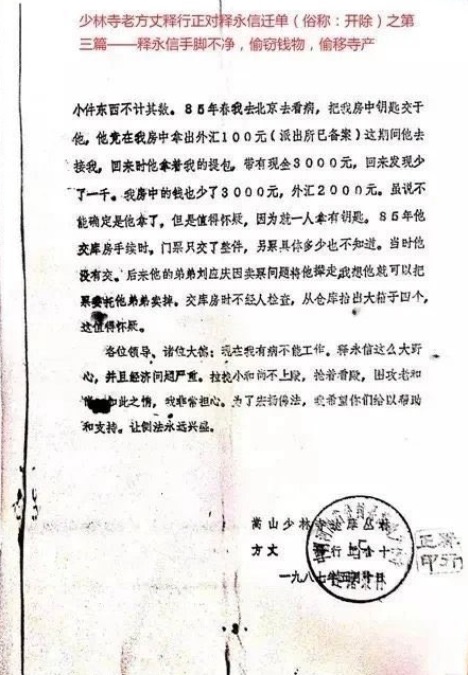 少林寺老方丈释行正对释永信迁单（俗称：开除）之第
三篇——释永信手脚不净，偷窃钱物，偷移寺产
小件东西不计其数。85年春我去北京去看病，把我房中钥匙交于
他，他竟在我房中拿出外汇100元（派出所已备案）这期间他去
接我，回来时他拿着我的提包，带有现金3000元，回来发现少
了一千。我房中的钱也少了3000元，外汇2000元。虽说不
能确定是他拿了，但是值得怀疑，因为就一人拿有钥匙。85年他
交库房手续时。门票只交了整件，另票具体多少也不知道。当时他
没有交。后来他的弟弟刘应庆因卖票问题将他操走，我想他就可以把
票委托他弟弟卖掉。交库房时不经人检查，从仓库抬出大箱子四个，
这值得怀疑。
各位领导、诸位大德：现在我有病不能工作。释永信这么大野
心，并且经济问题严重。拉拢小和尚不上殿，抢着看殿，围攻老和
如此之情，我非常担心。为了宏扬佛法，我希望你们给以帮助
和支持。让佛法永远兴盛。
嵩山少林寺
方丈 行正
一九八七年
正
印